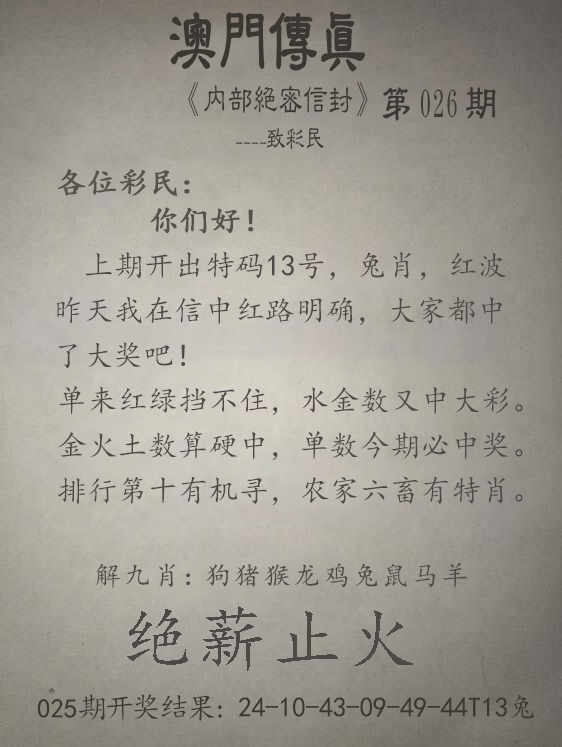 澳門傳眞
《内部絕密信封》第026期
----致彩民
各位彩民：
你们好！
上期开出特码13号，兔肖，红波
昨天我在信中红路明确，大家都中
了大奖吧！
单来红绿挡不住，水金数又中大彩。
金火土数算硬中，单数今期必中奖。
排行第十有机寻，农家六畜有特肖。
解九肖：狗猪猴龙鸡兔鼠马羊
绝薪止火
025期开奖结果：24-10-43-09-49-44T13兔